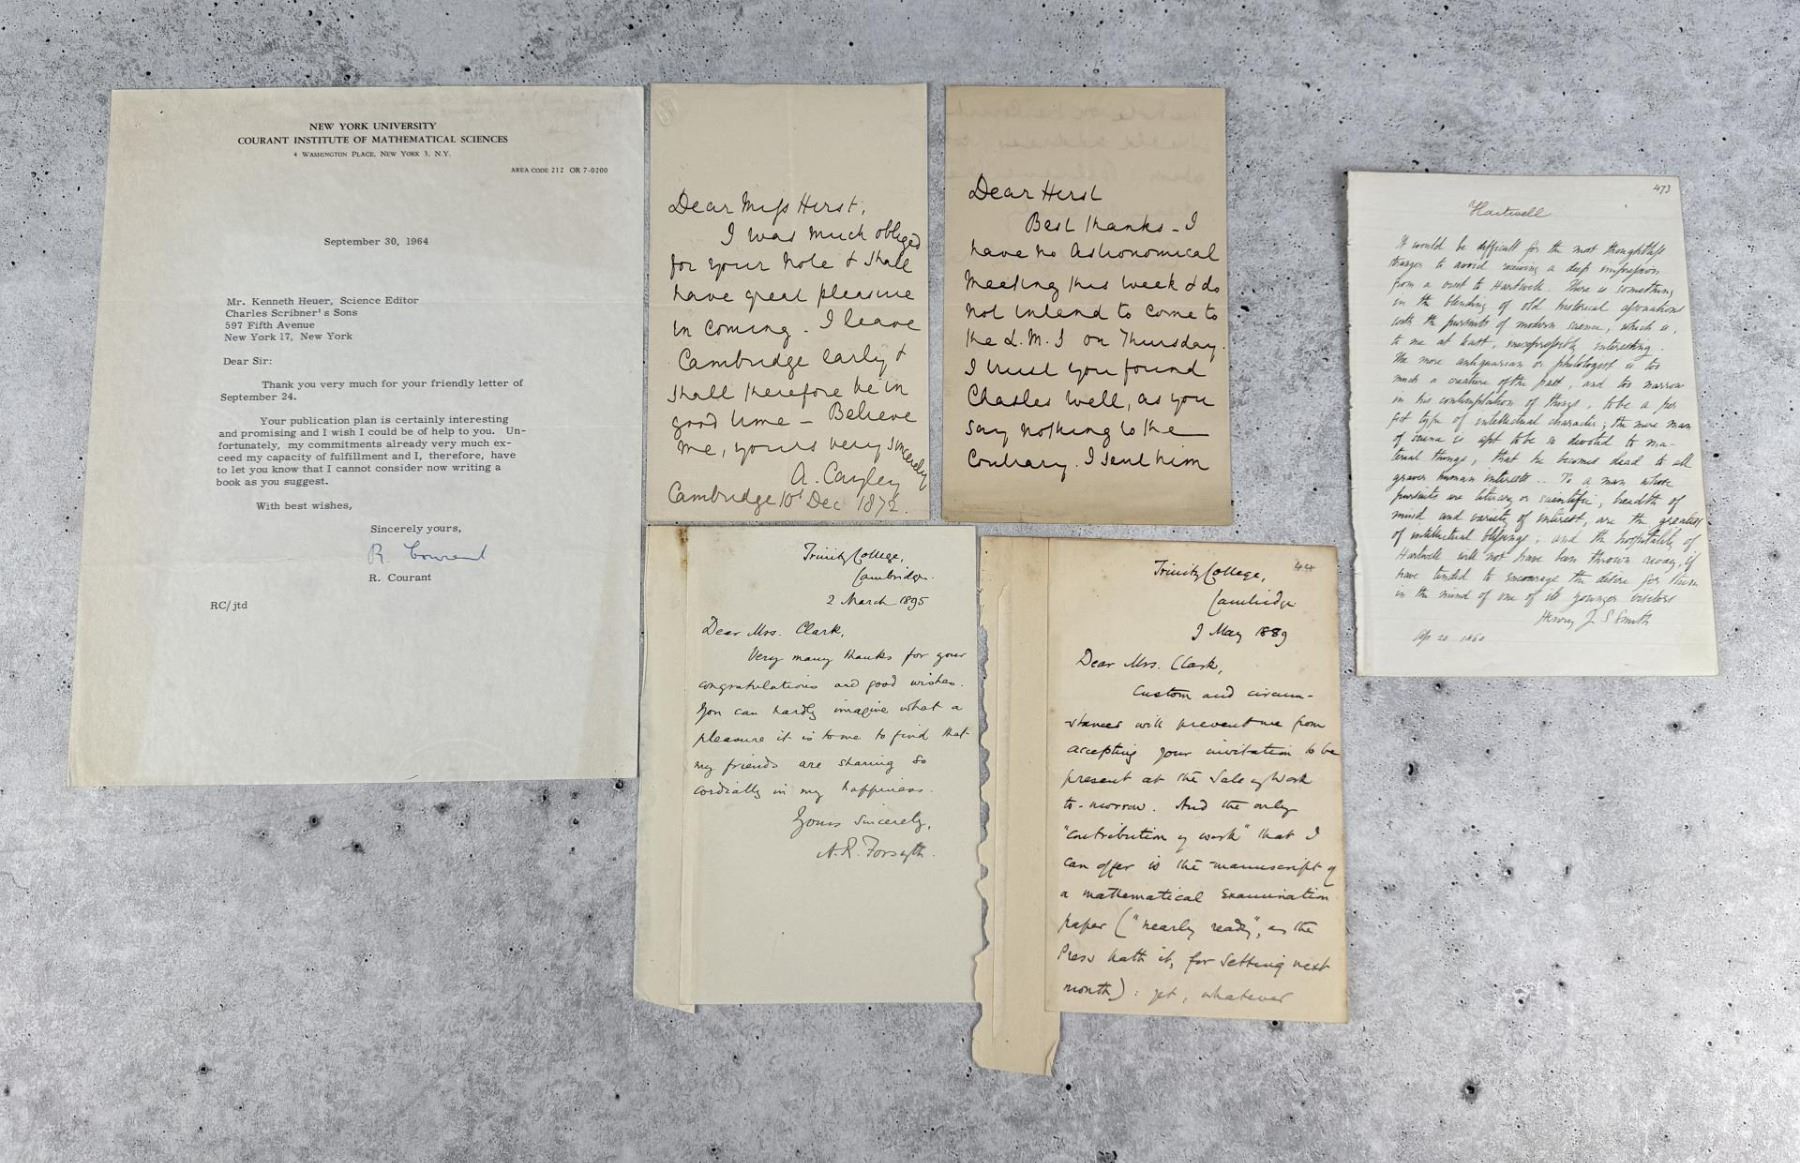 NEW YORK UNIVERSITY
COURANT INSTITUTE OF MATHEMATICAL SCIENCES
4 WASHINGTON PLACE, NEW YORK 3, N.Y.
AREA CODE 212 OR 7-0200
September 30, 1964
Mr. Kenneth Heuer, Science Editor
Charles Scribner's Sons
597 Fifth Avenue
New York 17, New York
Dear Sir:
Thank you very much for your friendly letter of
September 24.
Your publication plan is certainly interesting
and promising and I wish I could be of help to you. Un-
fortunately, my commitments already very much ex-
ceed my capacity of fulfillment and I, therefore, have
to let you know that I cannot consider now writing a
book as you suggest.
With best wishes,
Sincerely yours,
R. Courant
R. Courant
RC/jtd
Dear Miss Hirst,
I was much obliged
for your note & shall
have great pleasure
in coming. I leave
Cambridge early &
shall therefore be in
good time – Believe
me, yours very sincerely
A. Cayley
Cambridge 10t Dec 1872.
Dear Hirst
Best thanks – I
have no Astronomical
Meeting this week & do
not intend to come to
the L.M.S on Thursday.
I trust you found
Chasles well, as you
say nothing to the
contrary. I sent him
Trinity College,
Cambridge.
2 March 1895
Dear Mrs. Clark,
Very many thanks for your
congratulations and good wishes.
You can hardly imagine what a
pleasure it is to me to find that
my friends are sharing so
cordially in my happiness.
Yours sincerely,
A. R. Forsyth.
44
Trinity College,
Cambridge
9 May 1889
Dear Mrs. Clark,
Custom and circum-
stances will prevent me from
accepting your invitation to be
present at the Sale of Work
to-morrow. And the only
"contribution of work" that I
can offer is the manuscript of
a mathematical Examination
paper ("nearly ready", as the
Press hath it, for setting next
month) : yet, whatever
473
Hartwell
It would be difficult for the most thoughtless
stranger to avoid receiving a deep impression
from a visit to Hartwell. There is something
in the blending of old historical associations
with the pursuits of modern science, which is,
to me at least, inexpressibly interesting.
The mere antiquarian or philologist is too
much a creature of the past, and too narrow
in his contemplation of things, to be a per
fect type of intellectual character; the mere man
of science is apt to be so devoted to ma-
terial things, that he becomes dead to all
graver human interests. To a man whose
pursuits are literary or scientific, breadth of
mind and variety of interest, are the greatest
of intellectual blessings; and the hospitality of
Hartwell will not have been thrown away, if
have tended to encourage the desire for them
in the mind of one of its younger visitors
Henry J. S. Smith
1860